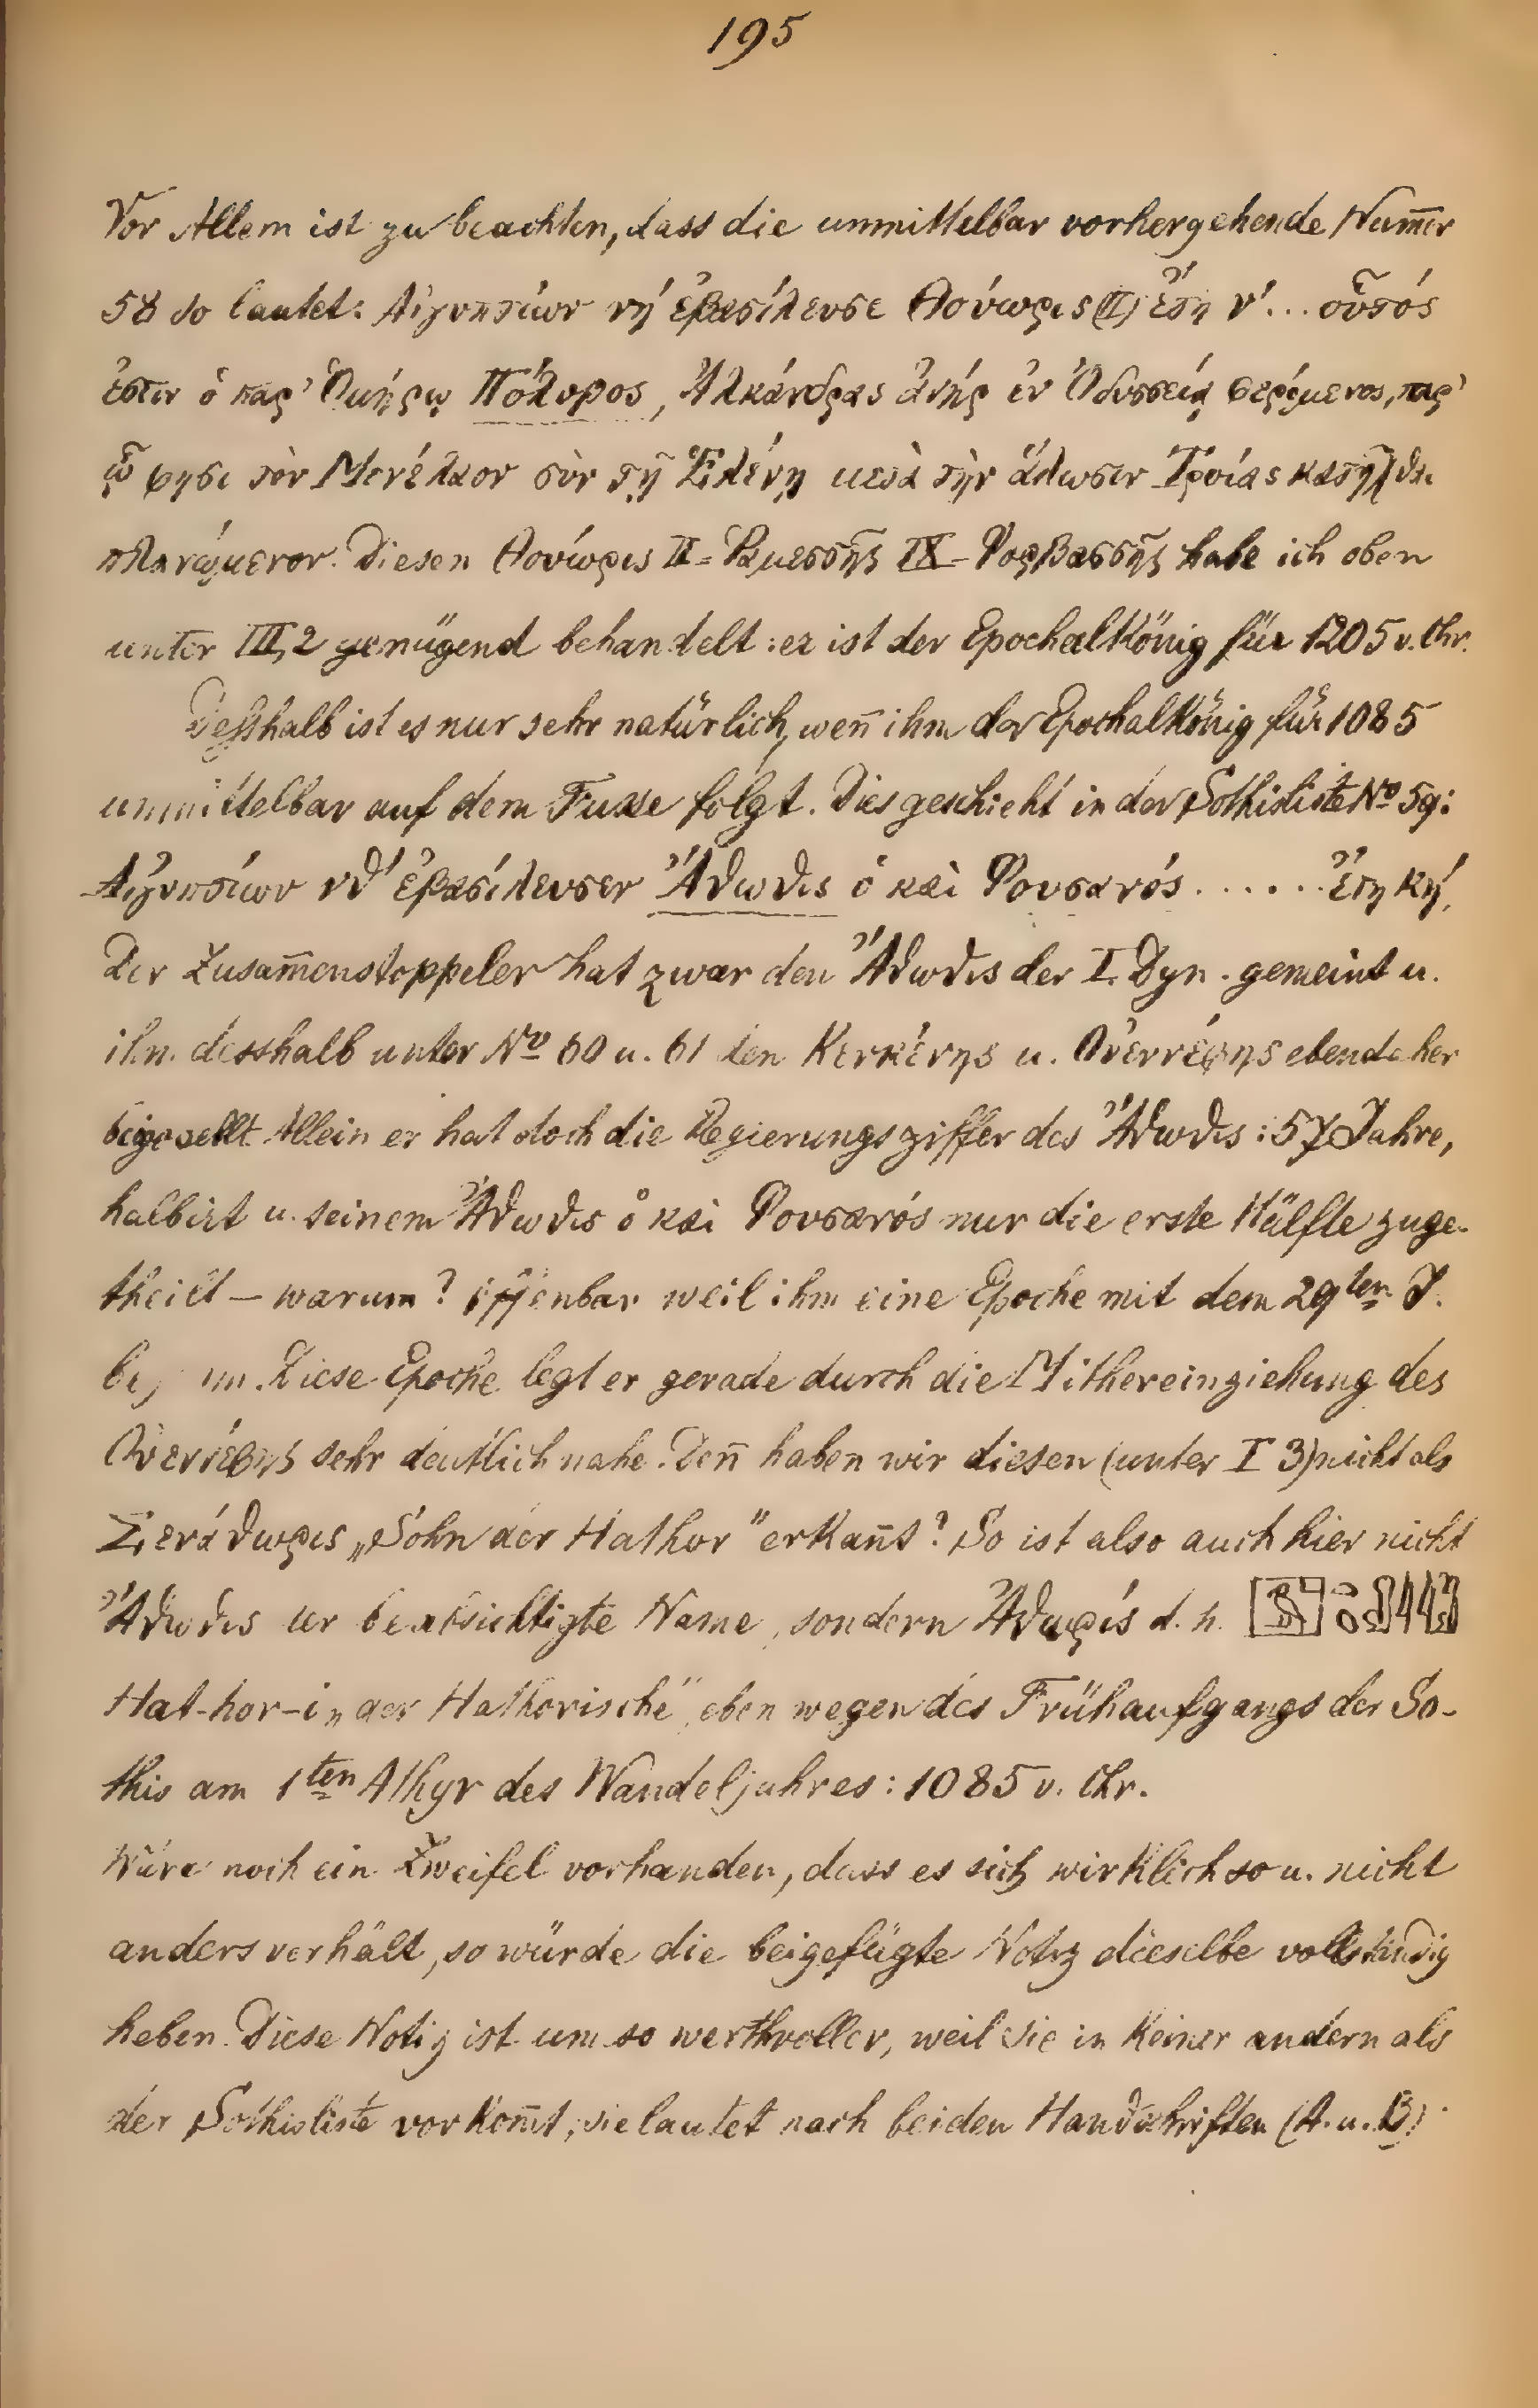 195
Vor Allem ist zu beachten, dass die unmittelbar vorhergehende Num̅er
58 so lautet: Αἰγυπτίων νή ἐβασίλευσε Θούωρις (II) ἔτη ν΄... οὗτός
ἐστιν ὁ παρ' Ὁμήρῳ Πόλυβος, Ἀλκάνδρας ἀνήρ ἐν Ὀδυσσείᾳ φερόμενος, παρ'
ᾧ φησι τὸν Μενέλαον σὺν τῇ Ἑλένῃ μετὰ τὴν ἅλωσιν Τροίας κατῆχθαι
πλανώμενον. Diesen Θούωρις II = Ῥαμεσσῆς IX - Φορβασσῆς habe ich oben
unter III, 2 genügend behandelt: er ist der Epochalkönig für 1205 v. Chr.
Desshalb ist es nur sehr natürlich, wen̅ ihm der Epochalkönig für 1085
unmittelbar auf dem Fusse folgt. Dies geschieht in der Sothisliste No 59:
Αἰγυπτίων νθ΄ ἐβασίλευσεν Ἄθωθις ὁ καὶ Φουσανός ...... ἔτη κή.
Der Zusam̅enstoppeler hat zwar den Ἄθωθις der I. Dyn. gemeint u.
ihm desshalb unter No 60 u. 61 den Κενκένης u. Οὐεννέφης ebendaher
beigesellt. Allein er hat doch die Regierungsziffer des Ἄθωθις: 57 Jahre,
halbirt u. seinem Ἄθωθις ὁ καὶ Φουσανός nur die erste Hälfte zuge-
theilt — warum? Offenbar weil ihm eine Epoche mit dem 29ten J.
Diese Epoche legt er gerade durch die Mithereinziehung des
Οὐεννέφης sehr deutlich nahe. Den̅ haben wir diesen (unter I 3) nicht als
Σιενάθωρις „Sohn der Hathor" erkan̅t? So ist also auch hier nicht
Ἄθωθις der beabsichtigte Name, sondern Ἀθωρίς d. h.
Hat-hor-i „der Hathorische" eben wegen des Frühaufgangs der So-
this am 1ten Athyr des Wandeljahres: 1085 v. Chr.
Wäre noch ein Zweifel vorhanden, dass es sich wirklich so u. nicht
anders verhält, so würde die beigefügte Notiz dieselbe vollständig
heben. Diese Notiz ist um so werthvoller, weil sie in keiner andern als
der Sothisliste vorkom̅t; sie lautet nach beiden Handschriften (A. u. B)